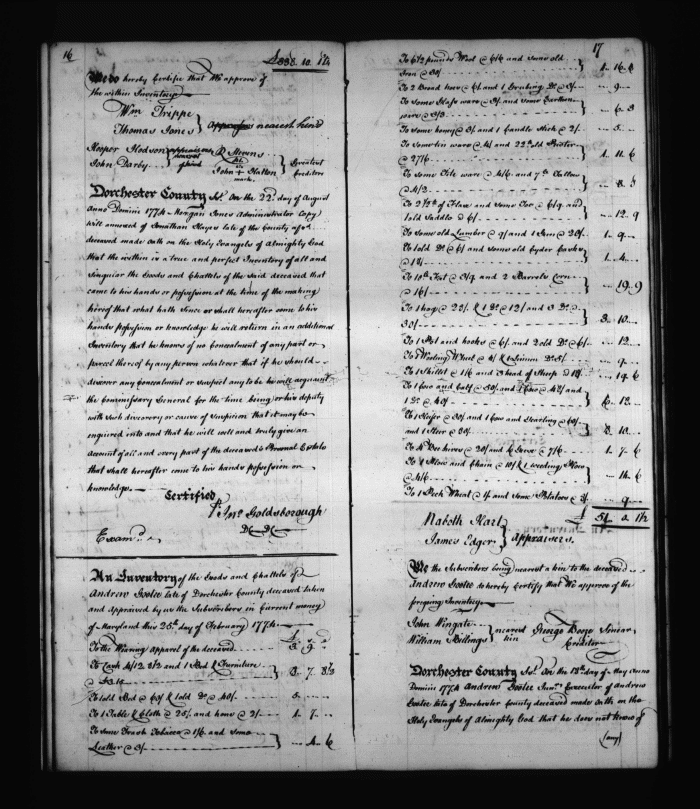 16
£838.10.1½
We do hereby Certifie that We approve of
the within Inventory
Wm Trippe
Thomas Jones } nearest kind
Hooper Hodson
John Darby
R Stevens
John + Hutton
mark
Greatest
Creditors
Dorchester County Sc. On the 22d. day of August
Anno Domini 1774 Morgan Jones Administrator Copy
will annexed of Jonathan Hayes late of the County afsd.
deceased made oath on the Holy Evangels of Almighty God
that the within is a true and perfect Inventory of all and
singular the Goods and Chattels of the said deceased that
came to his hands or possession at the time of the making
hereof that what hath since or shall hereafter come to his
hands possession or knowledge he will return in an additional
Inventory that he knows of no Concealment of any part or
parcel thereof by any person whatever that if he should
discover any Concealment or suspect any to be he will acquaint
the Commissary General for the time being or his deputy
with such discovery or cause of Suspicion that it may be
enquired into and that he will well and truly give an
account of all and every part of the deceased's Personal Estate
that shall hereafter come to his hands possession or
knowledge
Certified
Pr. Jno. Goldsborough
Examd.
An Inventory of the Goods and Chattels of
Andrew Gootee late of Dorchester County deceased taken
and appraised by us the Subscribers in Current money
of Maryland this 25th day of February 1774
To the Wearing apparel of the deceased 3 9
To Cash 4/12 8½ and 1 Bed & Furniture } 8 7 8½
To 1 old Bed @ 60/ & 1 old Do. @ 40/ 5
To 1 Table & Cloth @ 25/ and hone @ 2/ 1 7
To some Trash Tobacco @ 1/6 and some
Leather @ 3/ } 4 6
17
To 6½ pounds Wool @ 6/6 and some old
Iron @ 30/ } 1 16 6
To 2 Broad hoes @ 6/ and 1 Grubing Do. @ 3/ 9
To some Glass ware @ 3/ and some Earthen
ware @ 3/3 } 6 3
To some honey @ 3/ and 1 Candle Stick @ 2/ 5
To some tin ware @ 4/ and 22 lb. old Pewter
@ 27/6 } 1 11 6
To some Tite ware @ 4/6 and 7 lb. Tallow
@ 4/2 } 8 8
To 2½ lb. of Flax and some Tow @ 6/9 and
1 old Saddle @ 6/ } 12 9
To some old Lumber @ 9/ and 1 Gun @ 20/ 1 9
To 1 old Do. @ 6/ and some old Cyder Casks
@ 18/ } 1 4
To 10 lb. Fat @ 3/9 and 2 Barrels Corn
@ 16/ } 19 9
To 1 hog @ 25/ & 1 Do. @ 15/ and 3 Do. @
30/ } 3 10
To 1 Pot and hooks @ 6/ and 2 old Do. @ 6/ 12
To 1 Wooling Wheel @ 4/ & 1 Linnen Do. 5/ 9
To 1 Skillet @ 1/6 and 3 head of Sheep @ 13/ 14 6
To 1 Cow and Calf @ 50/ and 1 Cow @ 42/ and
1 Do. @ 40/ } 6 12
To 1 Heifer @ 30/ and 1 Cow and Yearling @ 60/
and 1 Steer @ 30/ } 8 10
To 4 Bee hives @ 20/ and @ 7/6 1 7 6
To 1 Plow and Chain @ 10/ & 1 weeding Plow
@ 4/6 } 14 6
To 1 Peck Wheat @ 1/ and some Potatoes @ 9
£ 51 1½
Naboth Hart
James Edger } Appraisers.
We the Subscribers being nearest a kin to the deceased
Andrew Gootee do hereby Certify that We approve of the
foregoing Inventory
John Wingate
William Billings } nearest kin
George Booze Senior
Creditor
Dorchester County Sc. On the 18th day of May Anno
Domini 1774 Andrew Gootee Junr. Executor of Andrew
Gootee late of Dorchester County deceased made oath on the
Holy Evangels of Almighty God that he does not know of
(any)